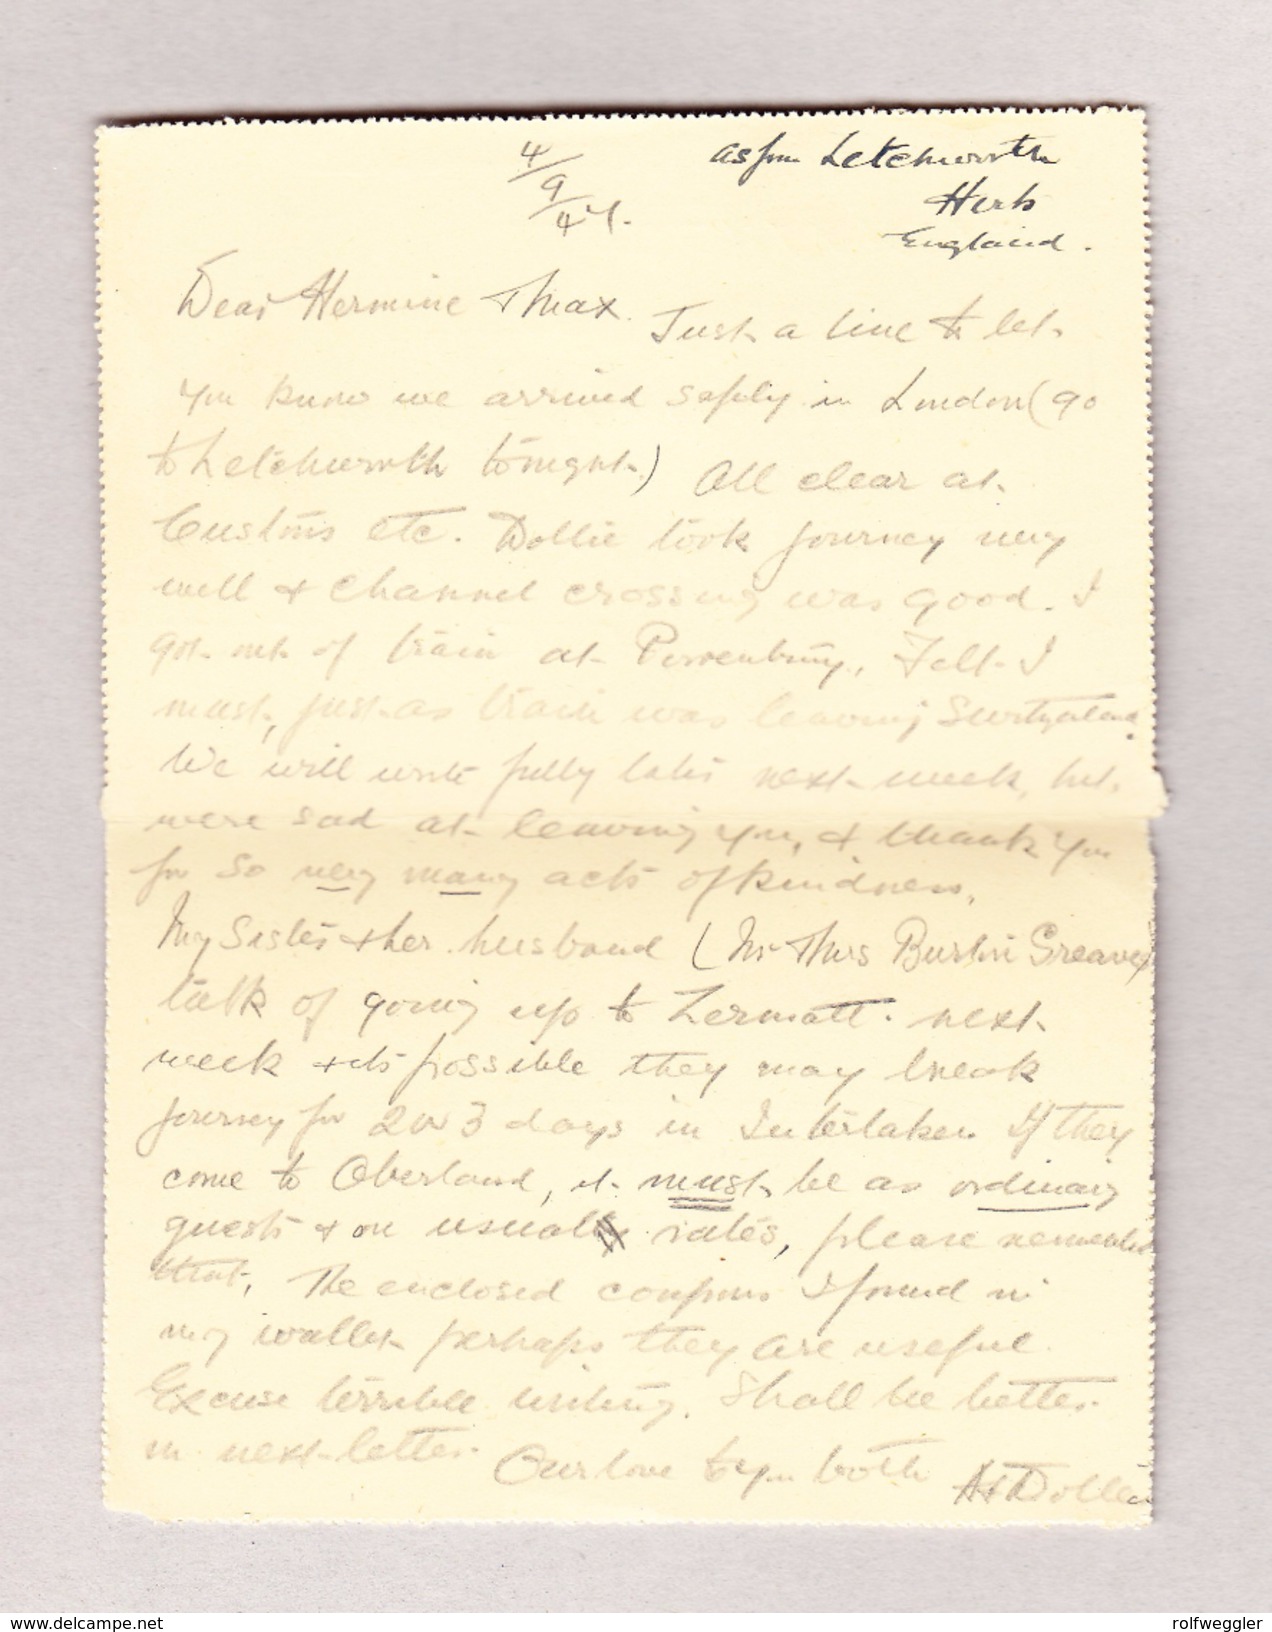 4/9/47.
as from Letchworth
Herts
England.
Dear Hermine & Max. Just a line to let
you know we arrived safely in London (go
to Letchworth tonight.) All clear at
Customs etc. Dollie took journey very
well & Channel crossing was good. I
got out of train at Porrentruy, Felt I
must, just as train was leaving Switzerland.
We will write fully later next week, but
were sad at leaving you, & thank you
for so very many acts of kindness,
My Sister & her husband (Mr & Mrs Greaves)
talk of going up to Zermatt. next
week & its possible they may break
journey for 2 or 3 days in Interlaken If they
come to Oberland, it must be as ordinary
guests & on usual rates, please remember
that, The enclosed coupons I found in
my wallet perhaps they are useful.
Excuse terrible writing. Shall be better
in next letter.
Our love to you both
& Dollie
www.delcampe.net
rolfweggler